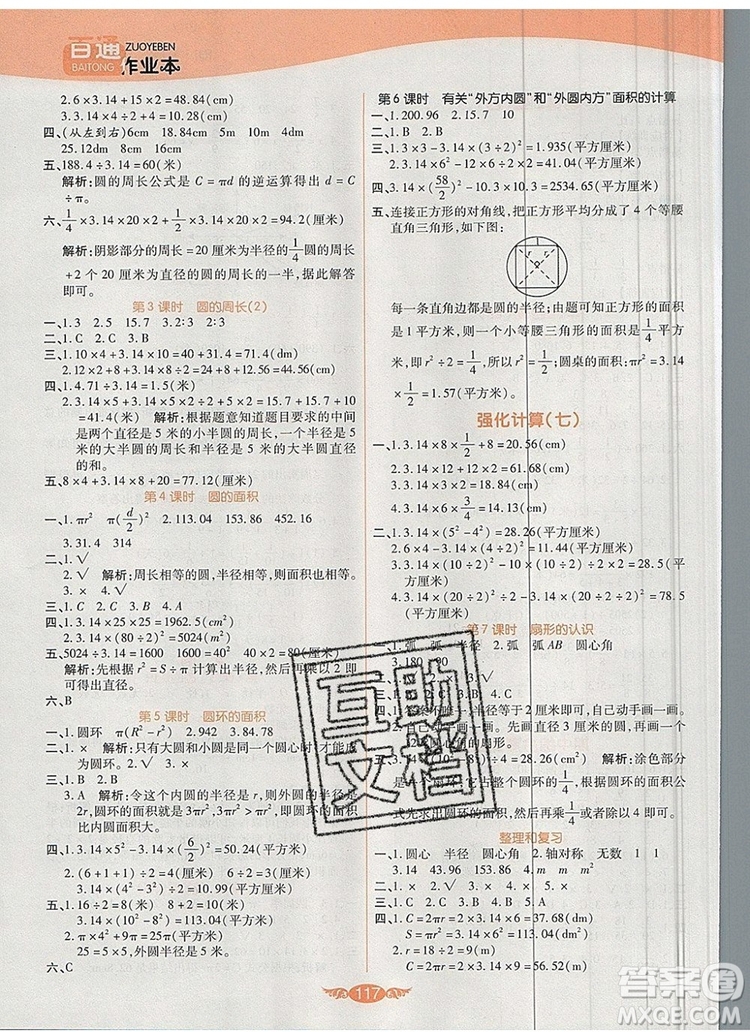 百通
BAITONG
ZUOYEBEN
作业本
2. 6×3.14+15×2=48.84(cm)
3. 2×3.14+2+4=10.28(cm)
四、(从左到右)6cm 18.84cm 5cm
25.12dm 8cm 16cm
五、188.4÷3.14=60(米)
解析:圆的周长公式是 C=πd 的逆运算得出 d=C
÷π。
六、1/4×3.14×20×2+1/2×3.14×20=94.2(厘米)
解析:阴影部分的周长=20 厘米为半径的圆的1/4
+2 个 20 厘米为直径的圆的周长的一半,据此解答
即可。
第3课时 圆的周长(2)
一、1. 3 2. 5 15.7 3. 2∶3 2∶3
二、1. C 2. C 3. A
三、1. 10×4+3.14×10=71.4(cm)
2. 12×2+3.14×12÷2=42.84(cm)
四、1. 4.71÷3.14=1.5(米)
2. 3.14×5×2÷2+3.14×5×2=15.7+15.7+10
=41.4(米) 解析:根据题意知道题目要求的中间
是两个直径是 5 米的小半圆的周长,两侧是直径为 5
米的大半圆的周长和两侧直径 5 米的两条线段的长
的和。
五、8×4+3.14×8×2=77.12(厘米)
第4课时 圆的面积
一、1. πr² π(d/2)² 2. 113.04 153.86 452.16
3. 31.4 314
二、1. √
2. √ 解析:周长相等的圆,半径相等,面积相等。
3. × 4. √
三、1. C 2. B 3. B 4. A
四、1. 3.14×(16÷2)²=200.96(cm²)
2. 3.14×(80÷2)²=5024(cm²)
五、5024÷3.14=1600 1600=40² 40×2=80(厘米)
解析:先根据 r²=S÷π 计算出半径,然后再乘以 2。
六、B
第5课时 圆环的面积
一、1. 圆环 π(R²-r²) 2. 942 3. 84.78
二、1. × 解析:只有大圆和小圆是一个圆心时,才能成
为圆环。 2. √ 3. ×
三、1. B 2. B
3. A 解析:令这个内圆的半径是 r,则外圆的半径是
2r,圆环的面积就是 3πr²,3πr²>πr²,所以圆环的面积
比内圆面积大。
四、1. 3.14×5²-3.14×(6/2)²=50.24(平方厘米)
2. (6+1)²-6²×3.14÷2=20.41(平方厘米)
3. 3.14×(4²-3²)÷2=10.99(平方厘米)
五、1. 16÷2=8(米) 8+2=10(米)
3.14×(10²-8²)=113.04(平方米)
2. πr²+4π+9π=25π(平方米)
25=5²,外圆半径是 5 米。
六、C
第6课时 有关“外方内圆”和“外圆内方”面积的计算
一、1. 200.96 2. 15.7 10
二、1. B 2. B
三、1. 3×3-3.14×(3÷2)²=1.935(平方厘米)
2. 3.14×6²-12×(12÷2)=41.04(平方厘米)
四、3.14×(58/2)²-10.3×10.3=2534.65(平方厘米)
五、连接正方形的对角线,把正方形平均分成了 4 个等腰
直角三角形,如下图:
r r
O
每一条直角边都是圆的半径;由题可知正方形的面积
是 1/2 平方米,则一个小等腰三角形的面积是1/2×1/4=
1/8,即 r²÷2=1/8,所以 r²=1/4;圆桌的面积是:3.14
×1/2=1.57(平方米)。
强化计算(七)
一、1. 3.14×8×1/2+8=20.56(cm)
2. 3.14×8×1/4+8=14.28(cm)
3. 3.14×6×3/4=14.13(cm)
二、1. 3.14×(5²-4²)=28.26(平方厘米)
2. 6×6-3.14×(6÷2)²÷2=11.44(平方厘米)
3. 3.14×(10÷2)²-10×(10÷2)÷2×2=28.5(平方厘
米)
4. 3.14×(12÷2)²-3.14×(10÷2)²÷2=78.78(平方
厘米)
第7课时 扇形的认识
一、1. 弧 弧 半径 2. 弧 弧AB 圆心角
3. 180 90
二、1. × 2. × 3. × 4. ×
三、1. 答案不唯一,半径是 2 厘米即可,自己动手画一画。
2. 自己动手画一画,先画直径 3 厘米的圆,再画
圆心角的扇形。
四、3.14×(10²-8²)÷4=28.26(厘米) 解析:涂色部分
是一个扇环,它占整个圆环的面积的1/4,根据圆环公
式先求出圆环的面积,然后再乘1/4或者除以 4 即可。
整理和复习
一、1. 圆心 半径 圆心角 2. 轴对称 无数 1 1
3. 14 43.96 153.86 4. 113.04
二、1. × 2. × 3. × 4. √
三、1. C 2. A 3. A 4. B
四、1. C=2πr=2×3.14×6=37.68(dm)
S=πr²=3.14×6²=113.04(dm²)
2. r=18÷2=9(cm)
C=2πr=2×3.14×9=56.52(cm)
互助
文档
117
答案圈
MXQE.COM